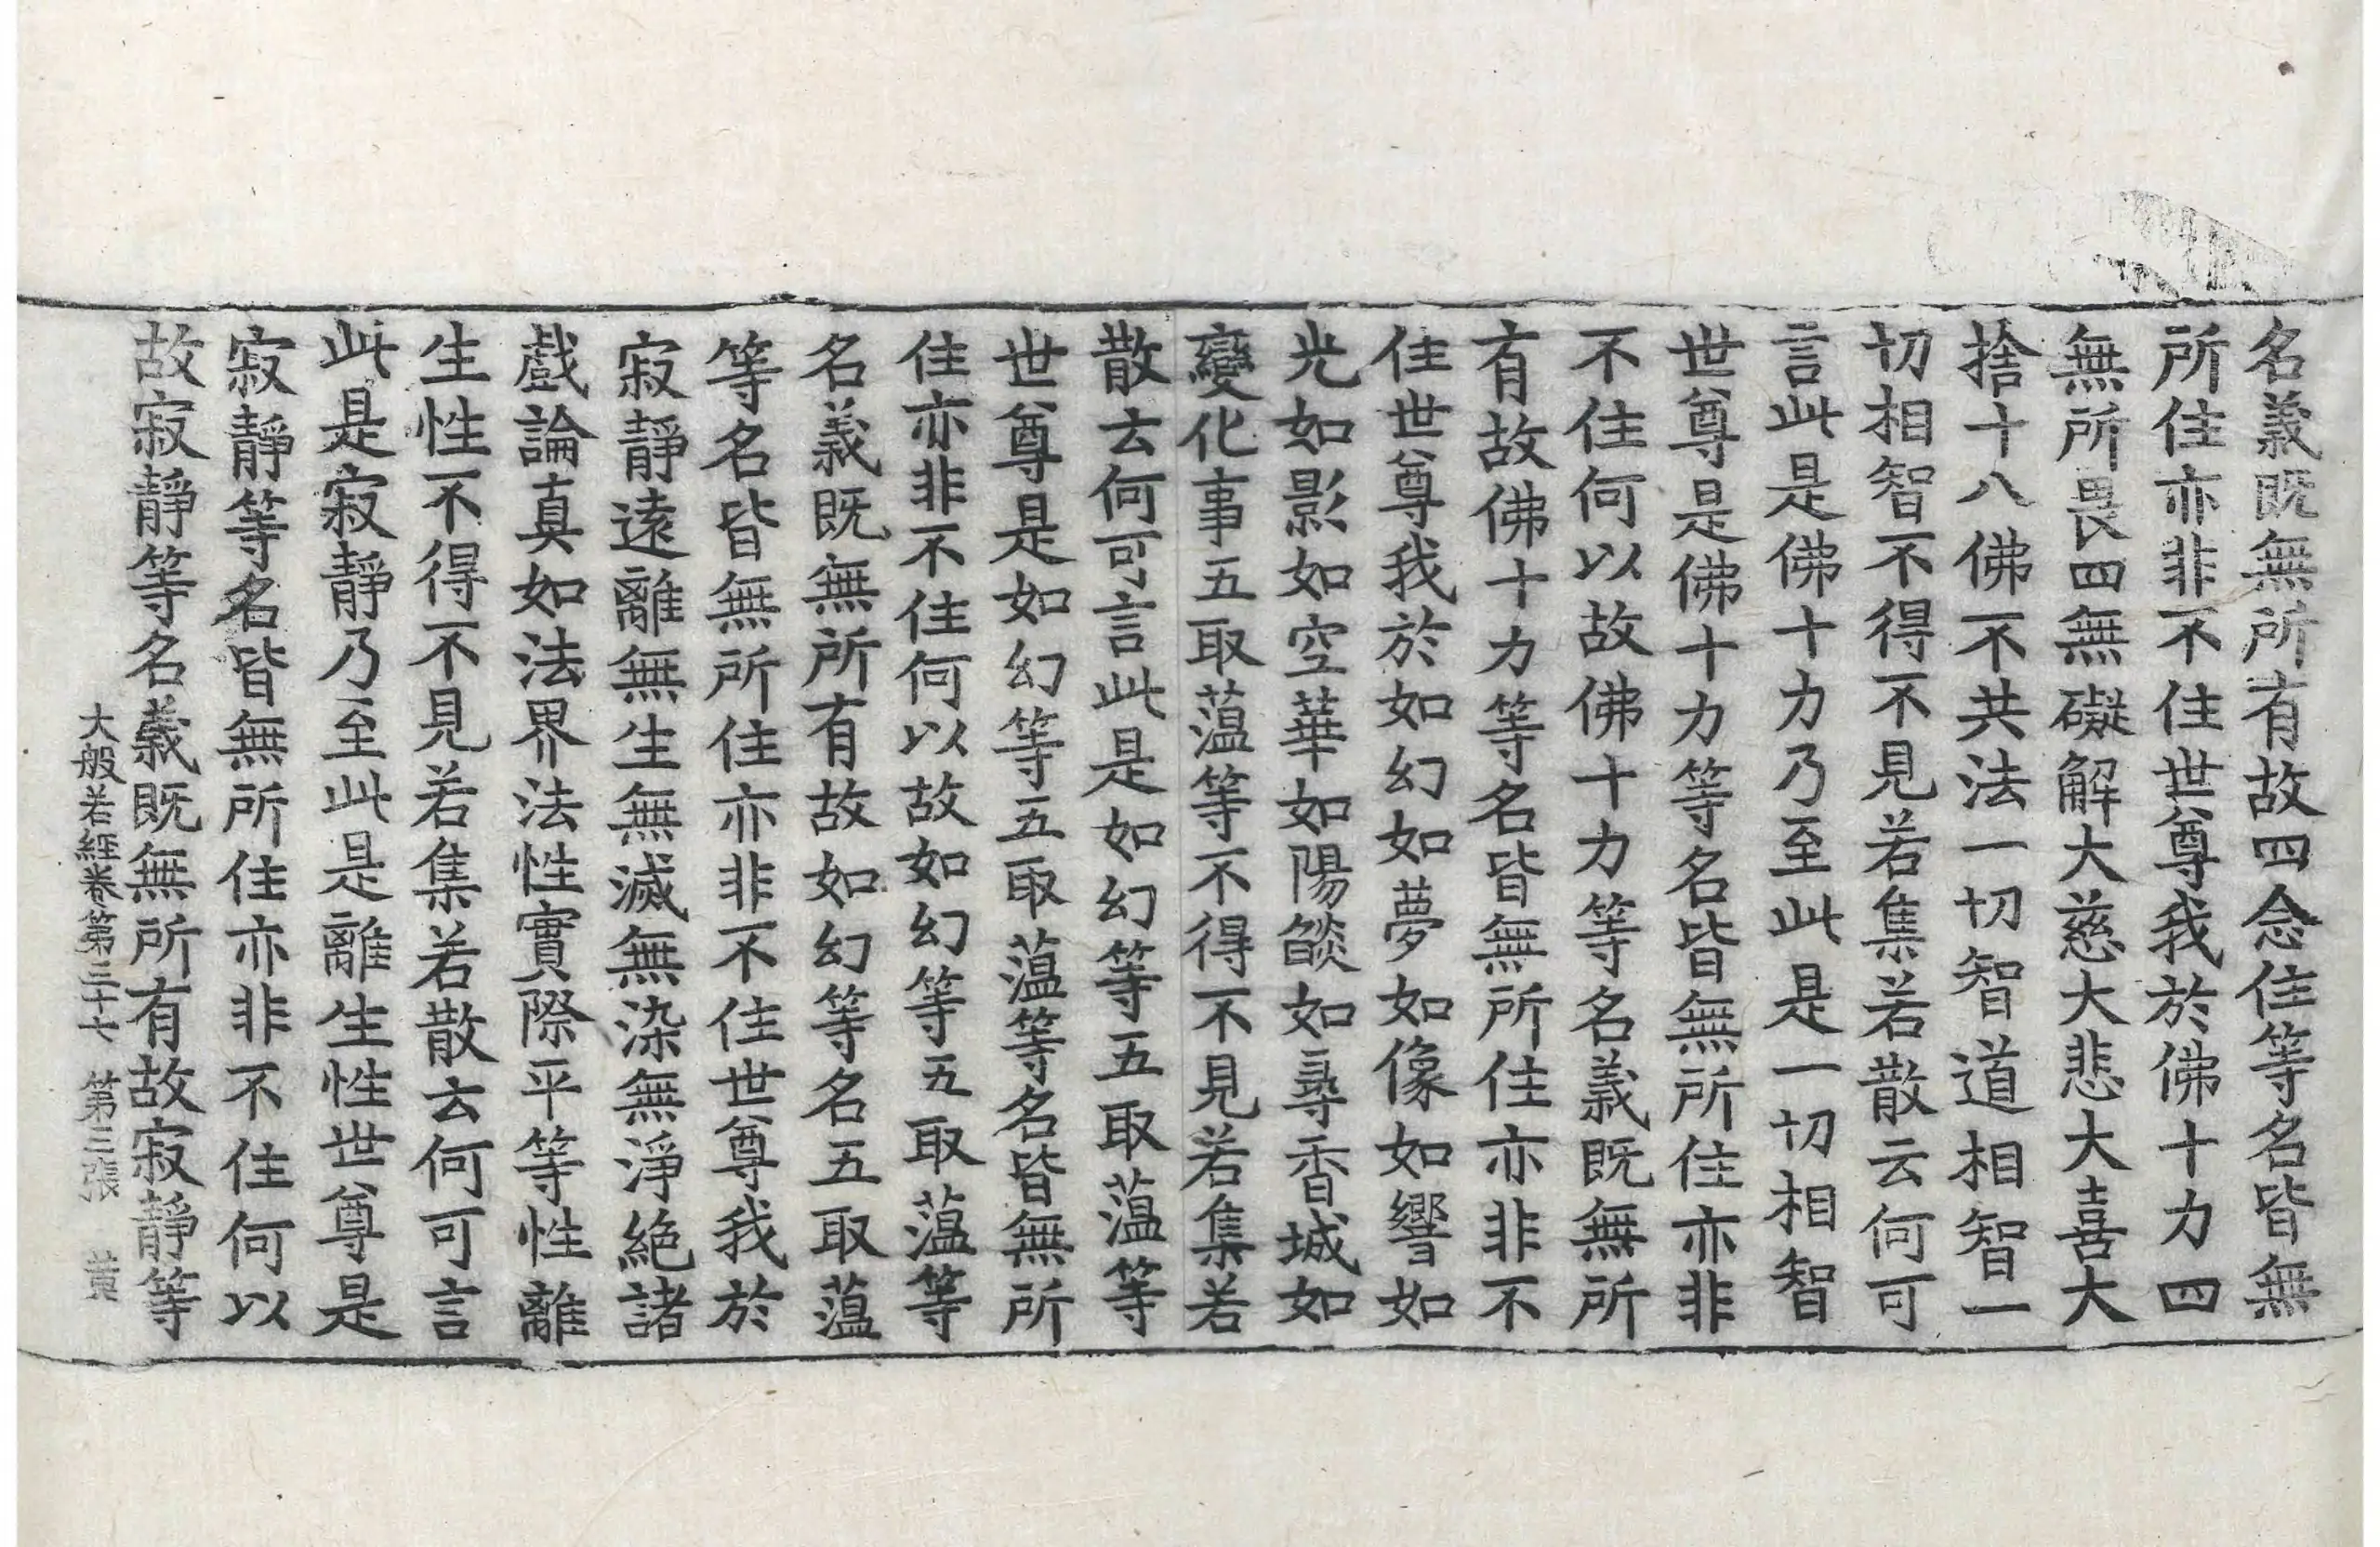 名義既無所有故四念住等名皆無
所住亦非不住世尊我於佛十力四
無所畏四無礙解大慈大悲大喜大
捨十八佛不共法一切智道相智一
切相智不得不見若集若散云何可
言此是佛十力乃至此是一切相智
世尊是佛十力等名皆無所住亦非
不住何以故佛十力等名義既無所
有故佛十力等名皆無所住亦非不
住世尊我於如幻如夢如像如響如
光如影如空華如陽燄如尋香城如
變化事五取蘊等不得不見若集若
散云何可言此是如幻等五取蘊等
世尊是如幻等五取蘊等名皆無所
住亦非不住何以故如幻等五取蘊等
名義既無所有故如幻等名五取蘊
等名皆無所住亦非不住世尊我於
寂靜遠離無生無滅無染無淨絶諸
戲論真如法界法性實際平等性離
生性不得不見若集若散云何可言
此是寂靜乃至此是離生性世尊是
寂靜等名皆無所住亦非不住何以
故寂靜等名義既無所有故寂靜等
大般若經卷第三十七 第三張 黃